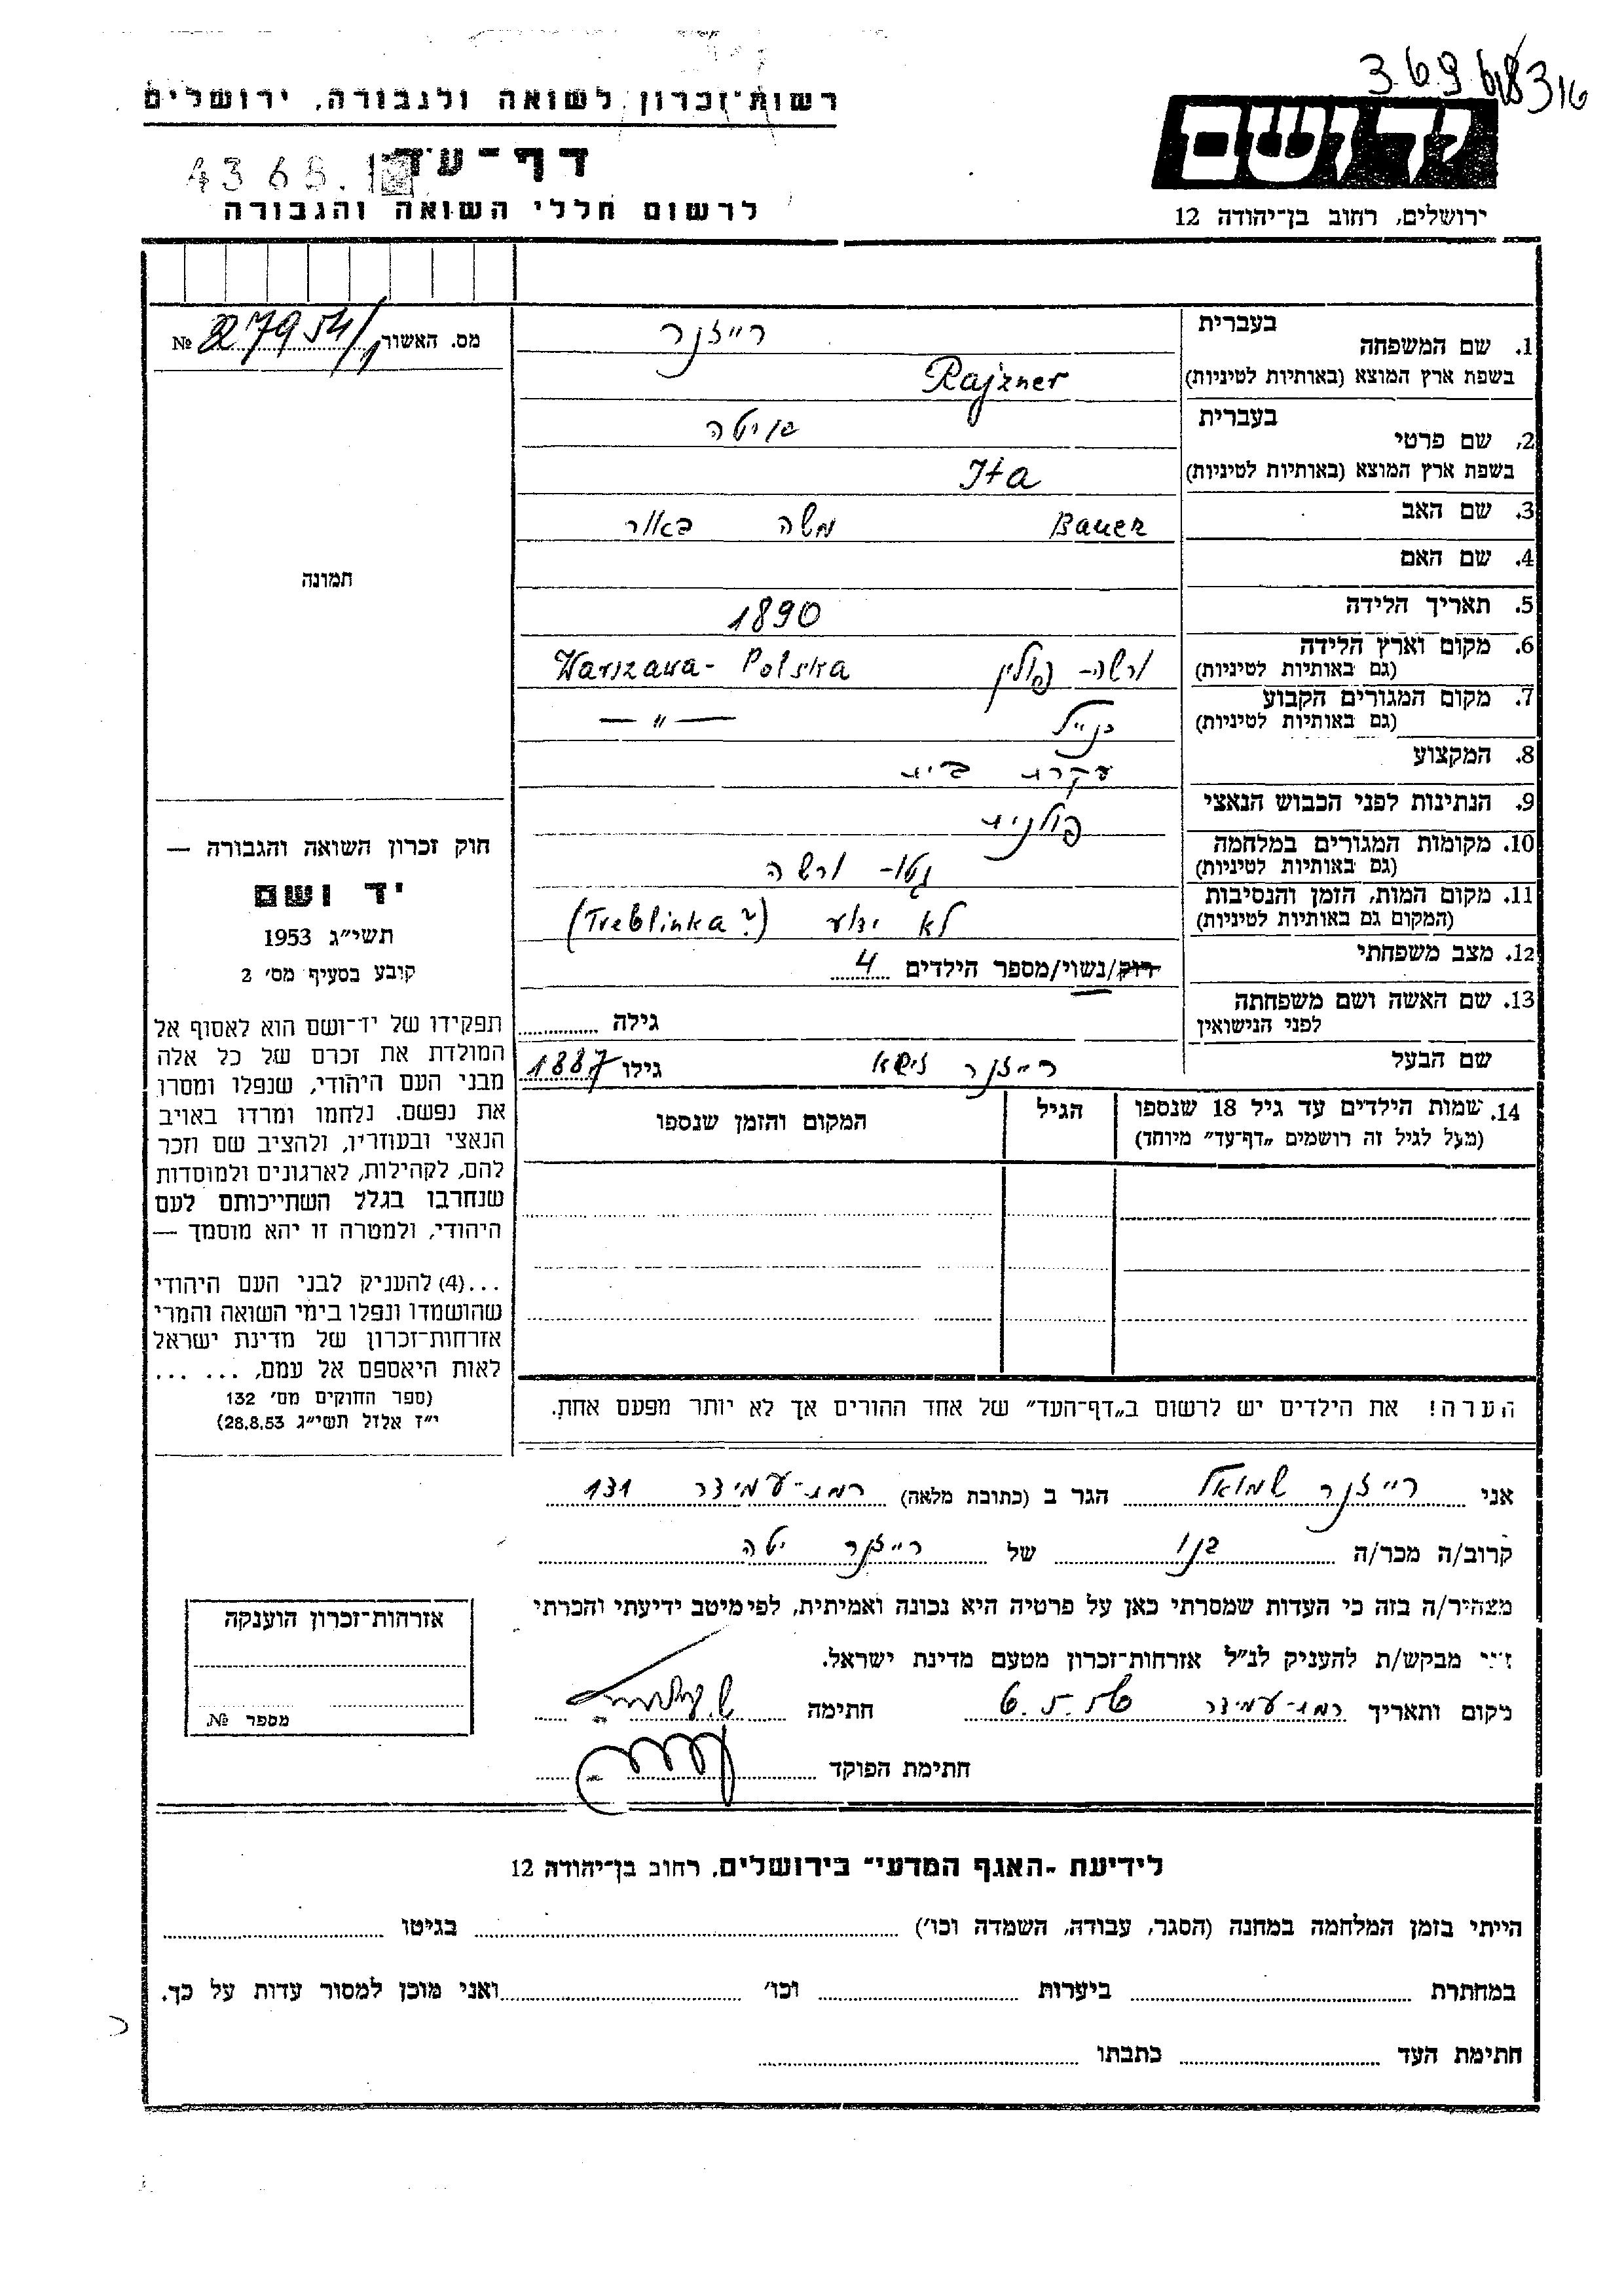 רשות־זכרון לשואה ולגבורה, ירושלים
דף־עד
לרשום חללי השואה והגבורה
יד ושם
ירושלים, רחוב בן־יהודה 12
מס. האשור № 227954/1
1. שם המשפחה בעברית רייזנר
בשפת ארץ המוצא (באותיות לטיניות) Rajzner
2. שם פרטי בעברית איטה
בשפת ארץ המוצא (באותיות לטיניות) Ita
3. שם האב Bauer משה באור
4. שם האם
5. תאריך הלידה 1890
6. מקום וארץ הלידה ורשה- פולין Warszawa- Polska
(גם באותיות לטיניות)
7. מקום המגורים הקבוע כנ״ל — " —
(גם באותיות לטיניות)
8. המקצוע עקרת בית
9. הנתינות לפני הכבוש הנאצי פולנית
10. מקומות המגורים במלחמה גטו- ורשה
(גם באותיות לטיניות)
11. מקום המות, הזמן והנסיבות לא ידוע (Treblinka?)
(המקום גם באותיות לטיניות)
12. מצב משפחתי רווק/נשוי/מספר הילדים 4
13. שם האשה ושם משפחתה
לפני הנישואין גילה
שם הבעל רייזנר גילו 1887
14. שמות הילדים עד גיל 18 שנספו הגיל המקום והזמן שנספו
(מעל לגיל זה רושמים „דף־עד״ מיוחד)
תמונה
חוק זכרון השואה והגבורה —
יד ושם
תשי״ג 1953
קובע בסעיף מס׳ 2
תפקידו של יד־ושם הוא לאסוף אל
המולדת את זכרם של כל אלה
מבני העם היהודי, שנפלו ומסרו
את נפשם, נלחמו ומרדו באויב
הנאצי ובעוזריו, ולהציב שם וזכר
להם, לקהילות, לארגונים ולמוסדות
שנחרבו בגלל השתייכותם לעם
היהודי, ולמטרה זו יהא מוסמך —
...(4) להעניק לבני העם היהודי
שהושמדו ונפלו בימי השואה והמרי
אזרחות־זכרון של מדינת ישראל
לאות היאספם אל עמם, ... ...
(ספר החוקים מס׳ 132
י״ז אלול תשי״ג 28.8.53)
הערה! את הילדים יש לרשום ב„דף־העד״ של אחד ההורים אך לא יותר מפעם אחת.
אני רייזנר שמואל הגר ב (כתובת מלאה) רמת-עמידר 131
קרוב/ה מכר/ה בנו של רייזנר יטה
מצהיר/ה בזה כי העדות שמסרתי כאן על פרטיה היא נכונה ואמיתית, לפי מיטב ידיעתי והכרתי
מבקש/ת להעניק לנ״ל אזרחות־זכרון מטעם מדינת ישראל.
מקום ותאריך רמת-עמידר 6.5.56 חתימה
חתימת הפוקד
אזרחות־זכרון הוענקה
מספר №
לידיעת „האגף המדעי״ בירושלים, רחוב בן־יהודה 12
הייתי בזמן המלחמה במחנה (הסגר, עבודה, השמדה וכו׳) בגיטו
במחתרת ביערות וכו׳ ואני מוכן למסור עדות על כך.
חתימת העד כתבתו